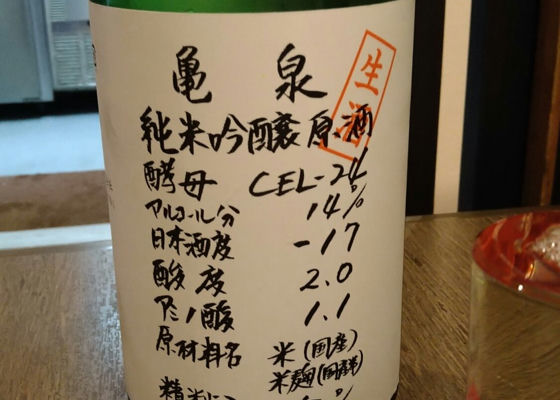 亀泉
生酒
純米吟醸原酒
酵母 CEL-24
アルコール分 14%
日本酒度 -17
酸度 2.0
アミノ酸 1.1
原材料名 米(国産)
米麹(国産米)
精米